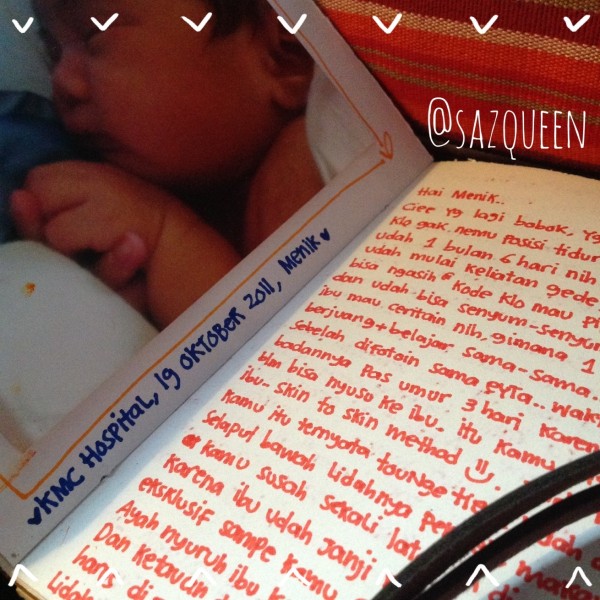 @SAZQUEEN
♥KMC Hospital, 19 OKTOBER 2011, Menik♥
Hai Menik..
Ciee yg lagi bobok, yg
klo gak nemu posisi tidur
udah 1 bulan 6 hari nih,
udah mulai keliatan gede
bisa ngasih kode klo mau
dan udah bisa senyum-senyum
ibu mau ceritain nih, gimana 1
berjuang+belajar sama-sama.
Sebelah difotoin sama
badannya pas umur 3 hari karena
blm bisa nyusu ke ibu. itu kamu
ibu. Skin to skin method
Kamu itu ternyata tounge tie
Selaput bawah lidahnya
kamu susah sekali
karena ibu udah janji
eksklusif sampe kamu
Ayah nyuruh ibu
Dan ketauan
harus